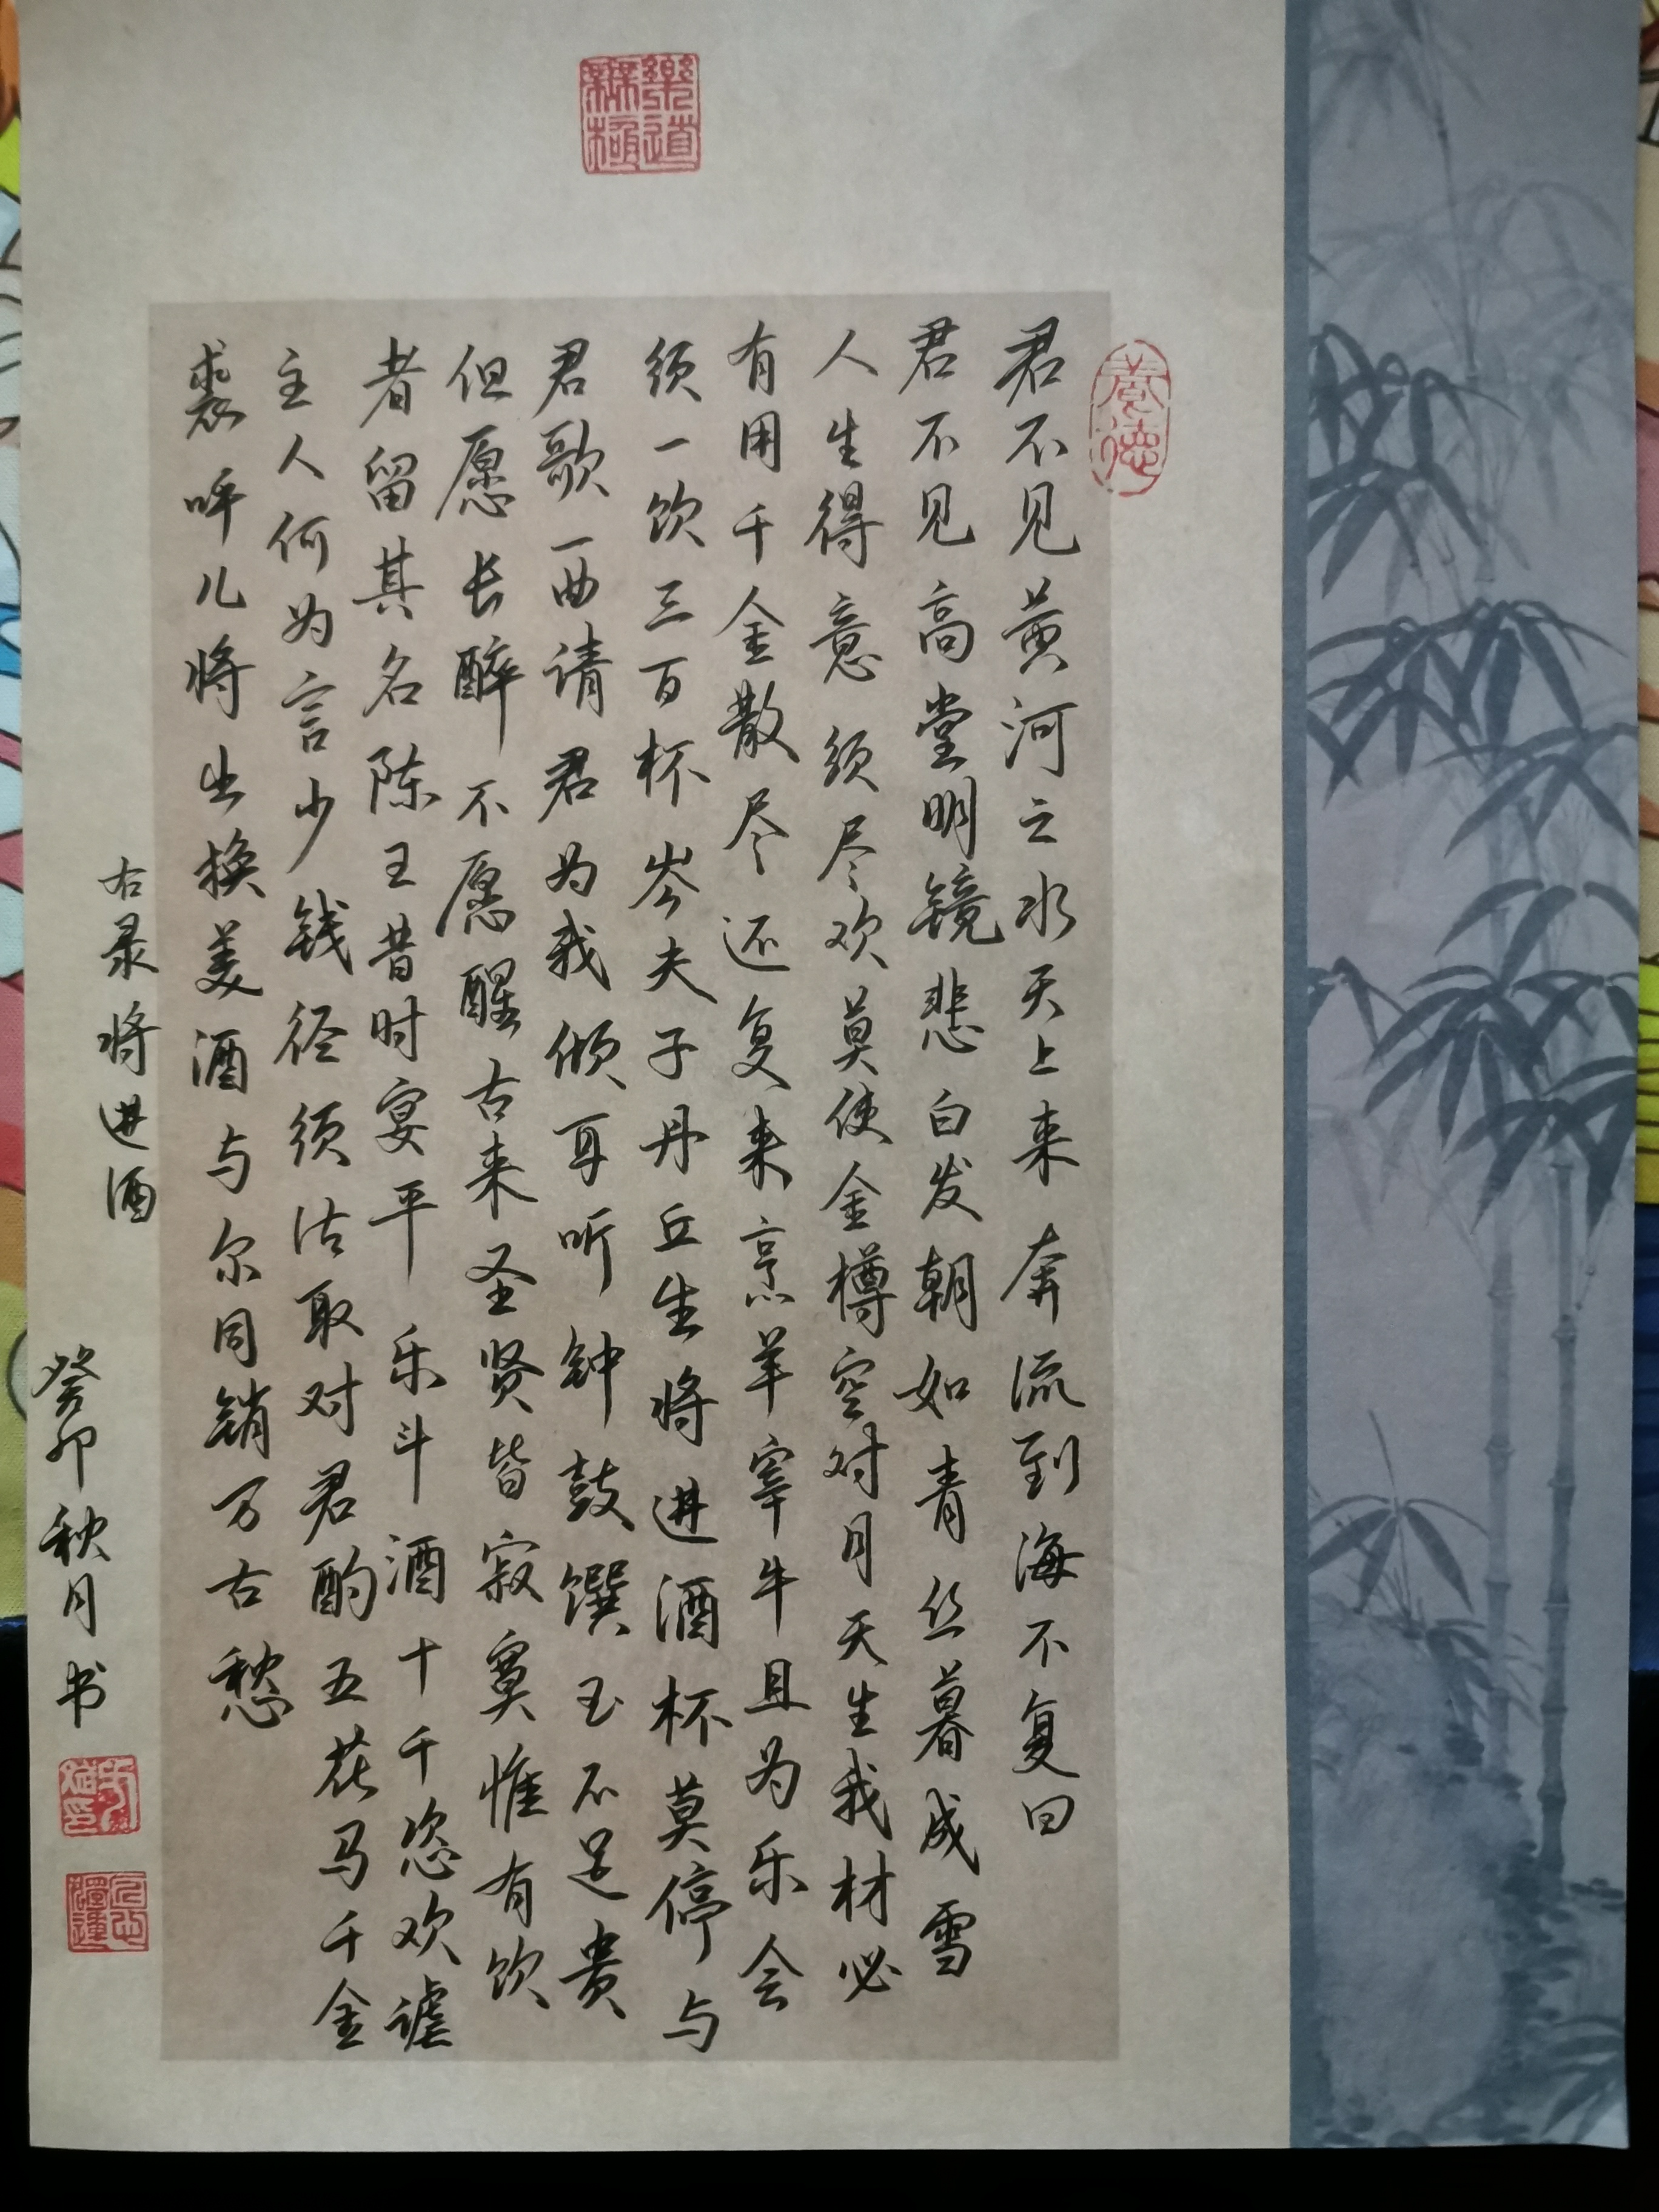 樂道無極
養德
君不见黄河之水天上来奔流到海不复回
君不见高堂明镜悲白发朝如青丝暮成雪
人生得意须尽欢莫使金樽空对月天生我材必
有用千金散尽还复来烹羊宰牛且为乐会
须一饮三百杯岑夫子丹丘生将进酒杯莫停与
君歌一曲请君为我倾耳听钟鼓馔玉不足贵
但愿长醉不愿醒古来圣贤皆寂寞惟有饮
者留其名陈王昔时宴平乐斗酒十千恣欢谑
主人何为言少钱径须沽取对君酌五花马千金
裘呼儿将出换美酒与尔同销万古愁
右录将进酒
癸卯秋月书